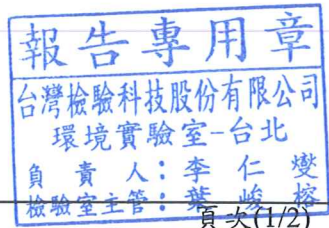 報告專用章
台灣檢驗科技股份有限公司
環境實驗室-台北
負責人：李仁燮
檢驗室主管：葉峻榕
頁次(1/2)